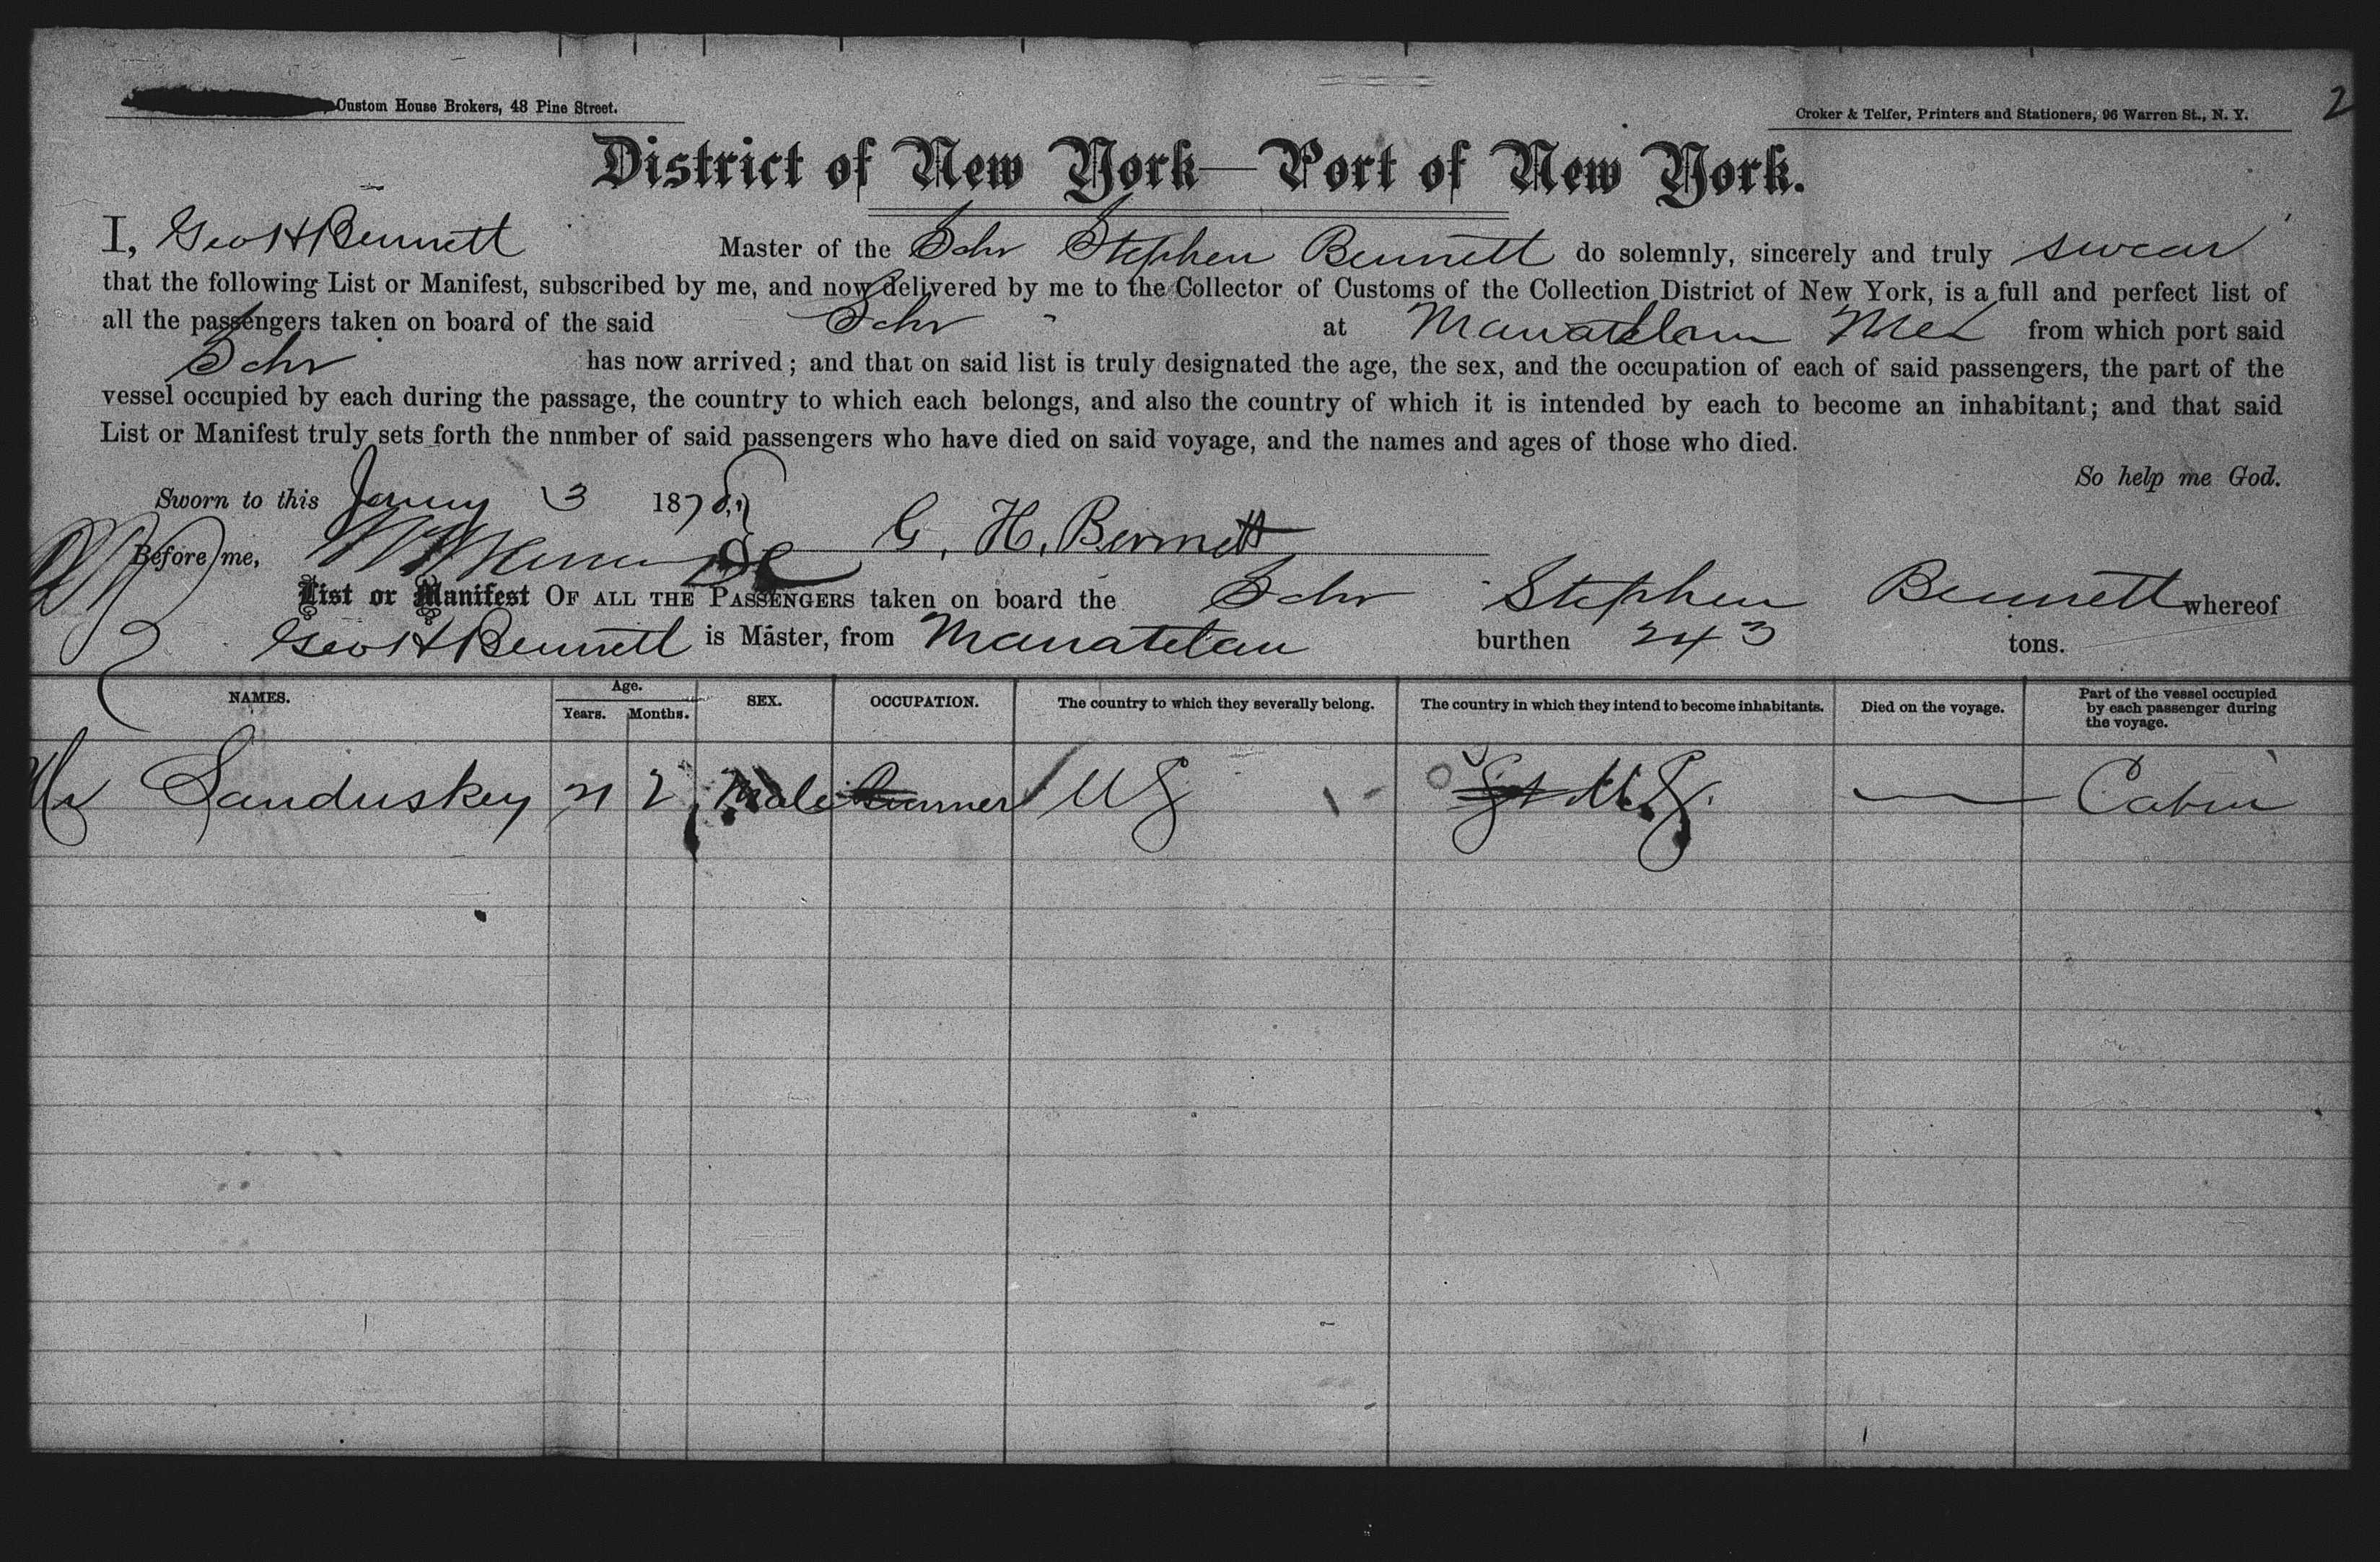 Custom House Brokers, 48 Pine Street.
Croker & Telfer, Printers and Stationers, 96 Warren St., N. Y.
2
District of New York—Port of New York.
I, Geo H Bennett Master of the Schr Stephen Bennett do solemnly, sincerely and truly swear
that the following List or Manifest, subscribed by me, and now delivered by me to the Collector of Customs of the Collection District of New York, is a full and perfect list of
all the passengers taken on board of the said Schr at Manatelan Mex from which port said
Schr has now arrived; and that on said list is truly designated the age, the sex, and the occupation of each of said passengers, the part of the
vessel occupied by each during the passage, the country to which each belongs, and also the country of which it is intended by each to become an inhabitant; and that said
List or Manifest truly sets forth the nnmber of said passengers who have died on said voyage, and the names and ages of those who died.
So help me God.
Sworn to this Jany 3 1878
G. H. Bennett
Before me,
List or Manifest OF ALL THE PASSENGERS taken on board the Schr Stephen Bennett whereof
Geo H Bennett is Master, from Manatelan burthen 243 tons.
NAMES. Age. Years. Months. SEX. OCCUPATION. The country to which they severally belong. The country in which they intend to become inhabitants. Died on the voyage. Part of the vessel occupied by each passenger during the voyage.
Mr Sanduskey 21 2 Male US US. — Cabin